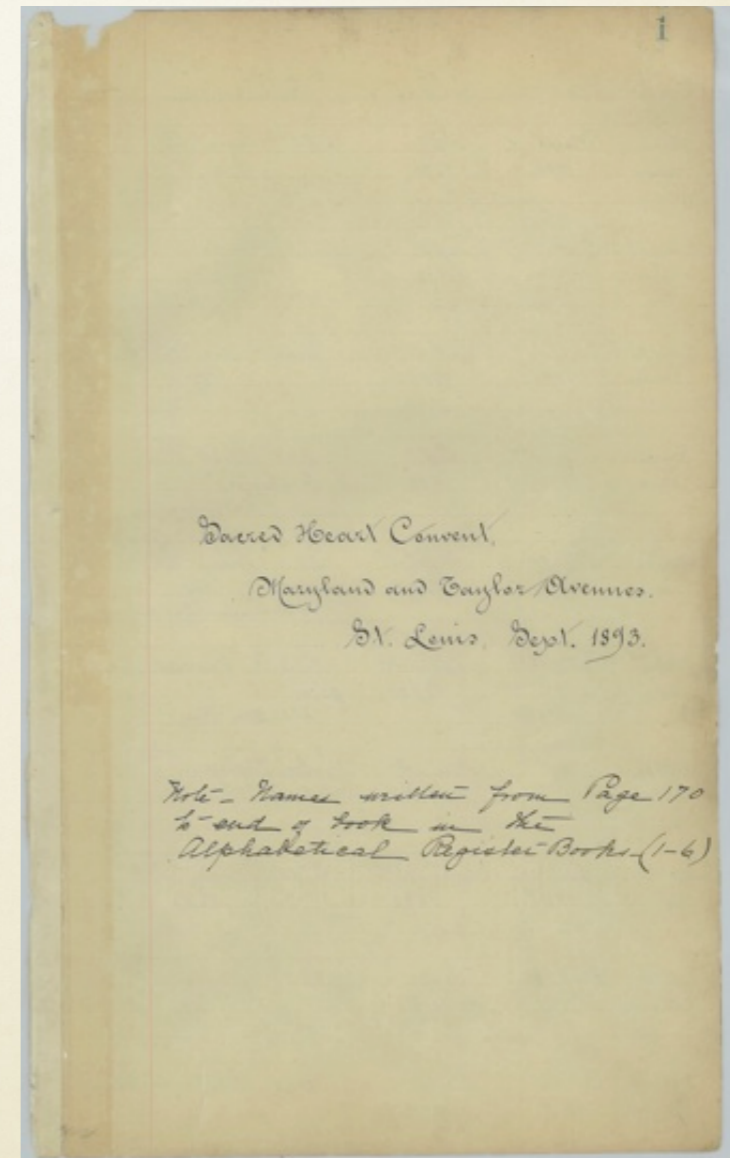 1
Sacred Heart Convent,
Maryland and Taylor Avenues.
St. Louis, Sept. 1893.
Note - Names written from Page 170
to end of book in the
Alphabetical Register Books - (1-6)